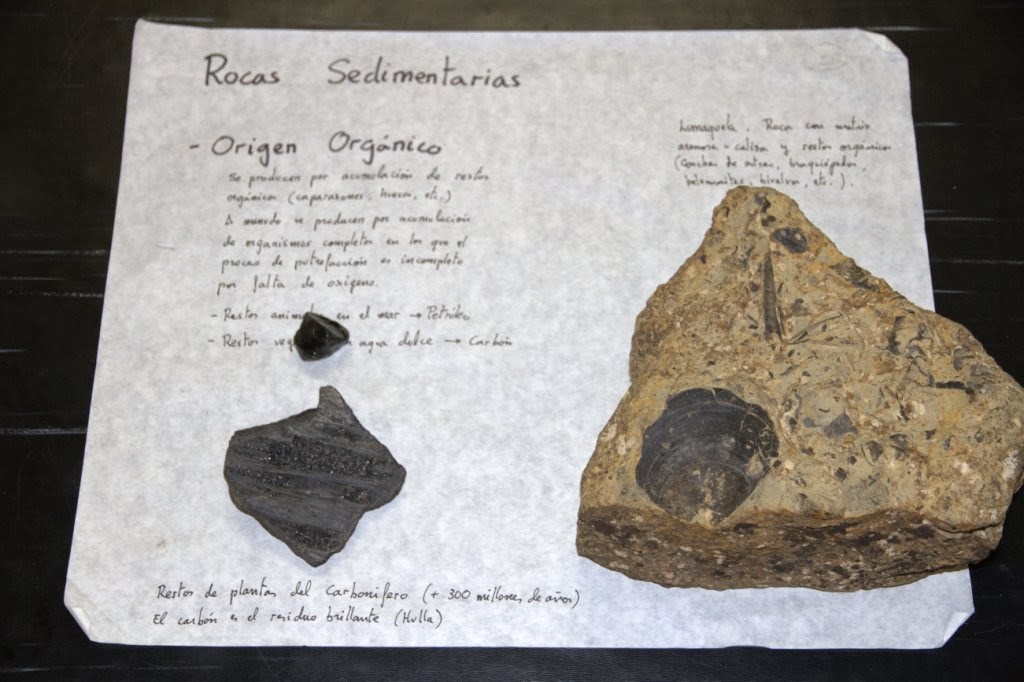 Rocas Sedimentarias
- Origen Orgánico
Se producen por acumulación de restos
orgánicos (caparazones, huesos, etc.)
A menudo se producen por acumulación
de organismos completos en los que el
proceso de putrefacción es incompleto
por falta de oxígeno.
- Restos en el mar → Petróleo
- Restos agua dulce → Carbón
Lumaquela. Roca con matriz
arenosa - caliza y restos orgánicos
(Conchas de ostras, braquiópodos,
belemnites, bivalvos, etc.).
Restos de plantas del Carbonífero (+ 300 millones de años)
El carbón es el residuo brillante (Hulla)